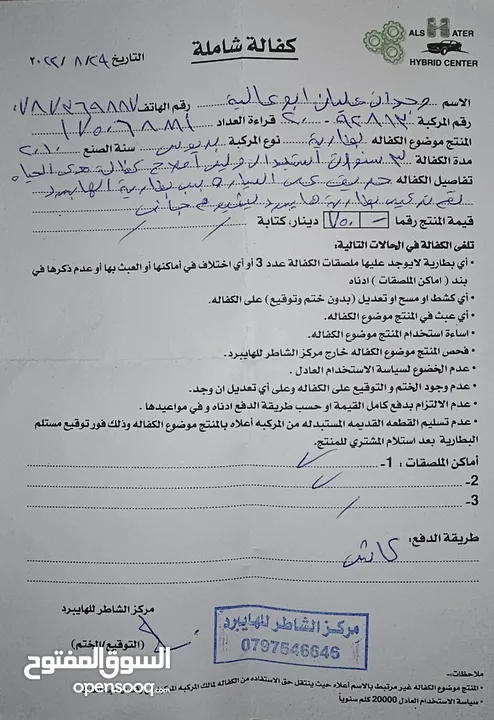 ALSHATER
HYBRID CENTER
كفالة شاملة
التاريخ ٢٠٢٢/٨/٢٤
الاسم وجدان عليان ابو عالية رقم الهاتف ٠٧٨٧٣٦٩٨٨٧
رقم المركبة ٩٢٨١٣-٢٠ قراءة العداد
المنتج موضوع الكفاله بطارية نوع المركبة بريوس سنة الصنع ٢٠١٠
مدة الكفالة ٣ سنوات استبدال وليس اصلاح كفالة مدى الحياة
تفاصيل الكفاله السيارة بسبب بطارية الهايبرد
بطارية هايبرد
قيمة المنتج رقما ٧٥٠ دينار، كتابة
تلغى الكفالة في الحالات التالية:
• أي بطارية لايوجد عليها ملصقات الكفالة عدد 3 او أي اختلاف في اماكنها أو العبث بها أو عدم ذكرها في
بند ( اماكن الملصقات ) ادناه
• أي كشط او مسح او تعديل (بدون ختم وتوقيع) على الكفاله.
• أي عبث في المنتج موضوع الكفاله.
• اساءة استخدام المنتج موضوع الكفاله.
• فحص المنتج موضوع الكفاله خارج مركز الشاطر للهايبرد.
• عدم الخضوع لسياسة الاستخدام العادل .
• عدم وجود الختم و التوقيع على الكفاله وعلى أي تعديل ان وجد.
• عدم الالتزام بدفع كامل القيمة او حسب طريقة الدفع ادناه و في مواعيدها .
• عدم تسليم القطعه القديمه المستبدله من المركبه أعلاه بالمنتج موضوع الكفاله وذلك فور توقيع مستلم
البطارية بعد استلام المشتري للمنتج.
أماكن الملصقات : 1-
2-
3-
طريقة الدفع: كاش
مركز الشاطر للهايبرد
(التوقيع/الختم)
مركز الشاطر للهايبرد
0797546646
السوق المفتوح
opensooq.com
ملاحظات:
• منتج موضوع الكفاله غير مرتبط بالاسم أعلاه حيث ينتقل حق الاستفاده من الكفاله لمالك المركبه
• سياسة الاستخدام العادل 20000 كلم سنوياً